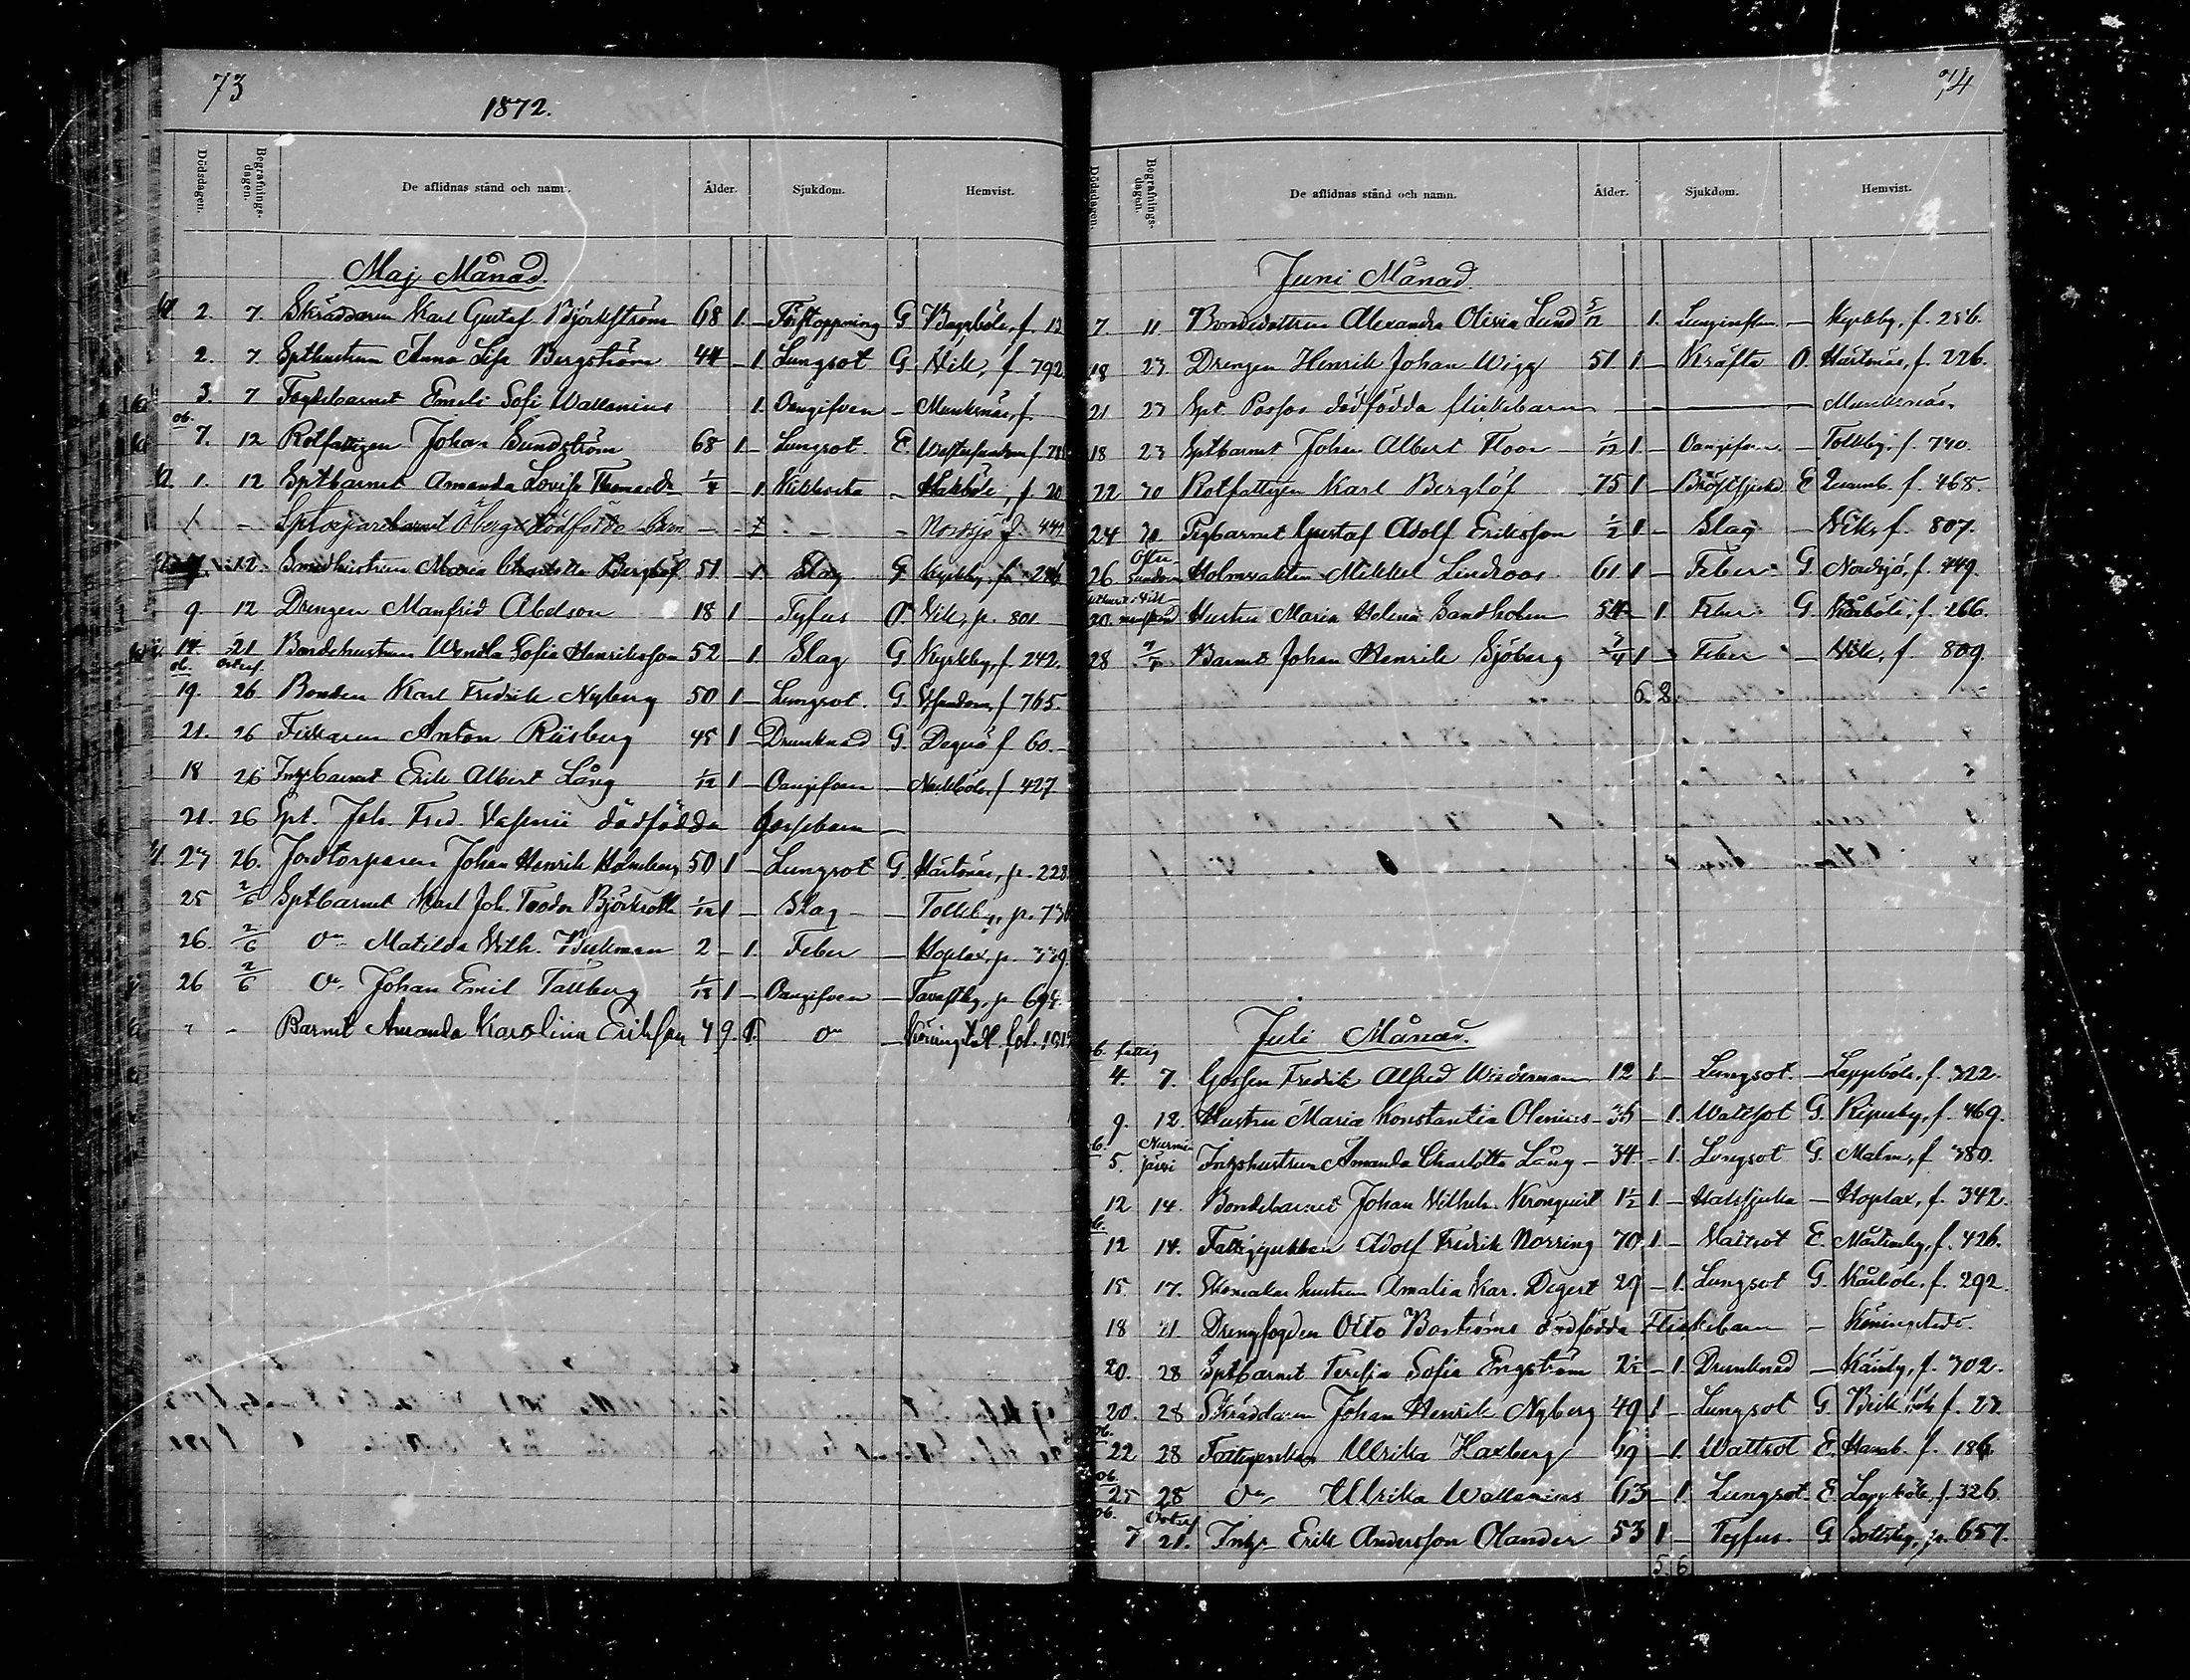 73
1872.
Dödsdagen. Begrafnings-dagen. De aflidnas stånd och namn. Ålder. Sjukdom. Hemvist.
Maj Månad.
2. 7. Skräddaren Karl Gustaf Björkström 68 1. – Förstoppning G Baggböle, f. 12
2. 7. Spthustrun Anna Lisa Bergström 44 – 1. Lungsot G. Vik, f. 792
3. 7 Emeli Sofi Wallenius 1. Oangifven – Munksnäs, f.
ob. 7. 12 Rotfattigen Johan Sundström 68 1. – Lungsot E.
1. 12 Sptbarnet Amanda Lovisa 1/4 – 1. Kikhosta – Håkböle, f. 20
Öberg – Nordsjö f. 449
7. 12. Smedhustrun Maria Charlotta Berglöf 51 – 1. Slag G Kyrkby, f.
9 12 Drengen Manfrid Abelson 18 1 – Tyfus O. Vik, p. 801
14 21 Bondehustrun Wendla Sofia Henriksson 52 – 1. Slag G Kyrkby, f. 242.
19. 26 Bonden Karl Fredrik Nyberg 50 1 – Lungsot. G. f 765.
21. 26 Fiskaren Anton Riisberg 45 1 – Drunknad G. Degerö f 60. –
18 26 Inhysbarnet Erik Albert Lång 1/12 1 – Oangifven – Nackböle, f. 427
21. 26 Spt. Joh. Fred. dödfödda gossebarn –
27 26. Jordtorparen Johan Henrik Holmberg 50 1 – Lungsot G. Hertonäs, p. 228
25 2/6 Sptbarnet Karl Joh. Teodor Björkroth 1/12 1 – Slag – – Tolkby, p. 730
26. 2/6 Do Matilda Vilh. Beckman 2 – 1. Feber – Hoplax, p. 339.
26 2/6 Do Johan Emil Tallberg 1/12 1 – Oangifven – Tavastby, p 694.
" – Barnet Amanda Karolina Eriksson 4 9. 1. Do –
74
Dödsdagen. Begrafnings-dagen. De aflidnas stånd och namn. Ålder. Sjukdom. Hemvist.
Juni Månad.
7. 11. Bondedottren Alexandra Olivia Lund 5/12 1. Lunginflam. – Kyrkby, f. 256.
18 23. Drengen Henrik Johan Wigg 51. 1. – Kräfta O. Hertonäs, f. 226.
21 23 Spt. dödfödda flickebarn – Munksnäs.
18 23 Sptbarnet Johan Albert Floor – 1/12 1. – Oangifven. – Tolkby. f. 740.
22 30 Rotfattigen Karl Berglöf 75 1 – Bröstsjukd E f. 468.
24 30. Gustaf Adolf Eriksson 1/2 1 – Slag – Vik, f. 807.
26 Östersundom Holmvakten Mikkel Lindroos 61. 1 – Feber G. Nordsjö, f. 449.
20. Hustru Maria Helena Sandholm 54 – 1. Feber G. Kårböle, f. 266.
28 Barnet Johan Henrik Sjöberg 3/4 1 – Feber – Vik, f. 809.
6. 2.
Juli Månad.
ob. fattig
4. 7. Gossen Fredrik Alfred Wiederman 12 1 – Lungsot. – Lappböle, f. 322.
9. 12. Hustru Maria Konstantia Olenius – 1. Wattsot G. Ripuby, f. 469.
5. Nurmijärvi Inhyshustrun Amanda Charlotta Lång – 34 – 1. Lungsot G. Malm, f 380.
12 14. Bondebarnet Johan Vilhelm Kronqvist 1 1/2 1. – Halssjuka – Hoplax, f. 342.
ob. 12 14. Fattiggubben Adolf Fredrik Norring 70 1 – Vattsot E. Mårtensby, f. 426.
15 17. hustrun Amalia Kar. Degert 29 – 1. Lungsot G. Kårböle, f. 292.
18 21. Drengfogden Otto Boströms dödfödda flickebarn – Köningstedt
20. 28 Sptbarnet Teresia Sofia Engström 2 1/2 – 1. Drunknad – f. 302.
20. 28 Skräddaren Johan Henrik Nyberg 49 1 – Lungsot G. f. 27.
ob. 22 28 Ulrika Haxberg 69 – 1. Wattsot E. f. 186
ob. 25 28 Do Ulrika Wallenius 63 – 1. Lungsot E. Lappböle, f. 326.
ob. 7 21. Inhys Erik Andersson Olander 53 1 – Tyfus. G Sottby, p. 657.
5. 6